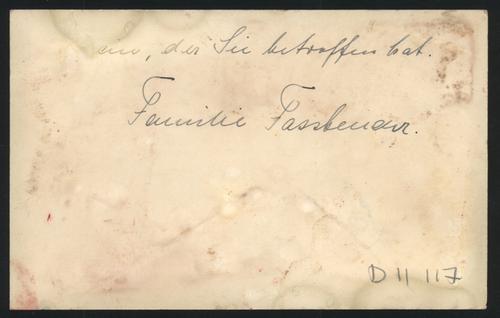 ein, der Sie betroffen hat.
Familie Fassbender.
D II 117